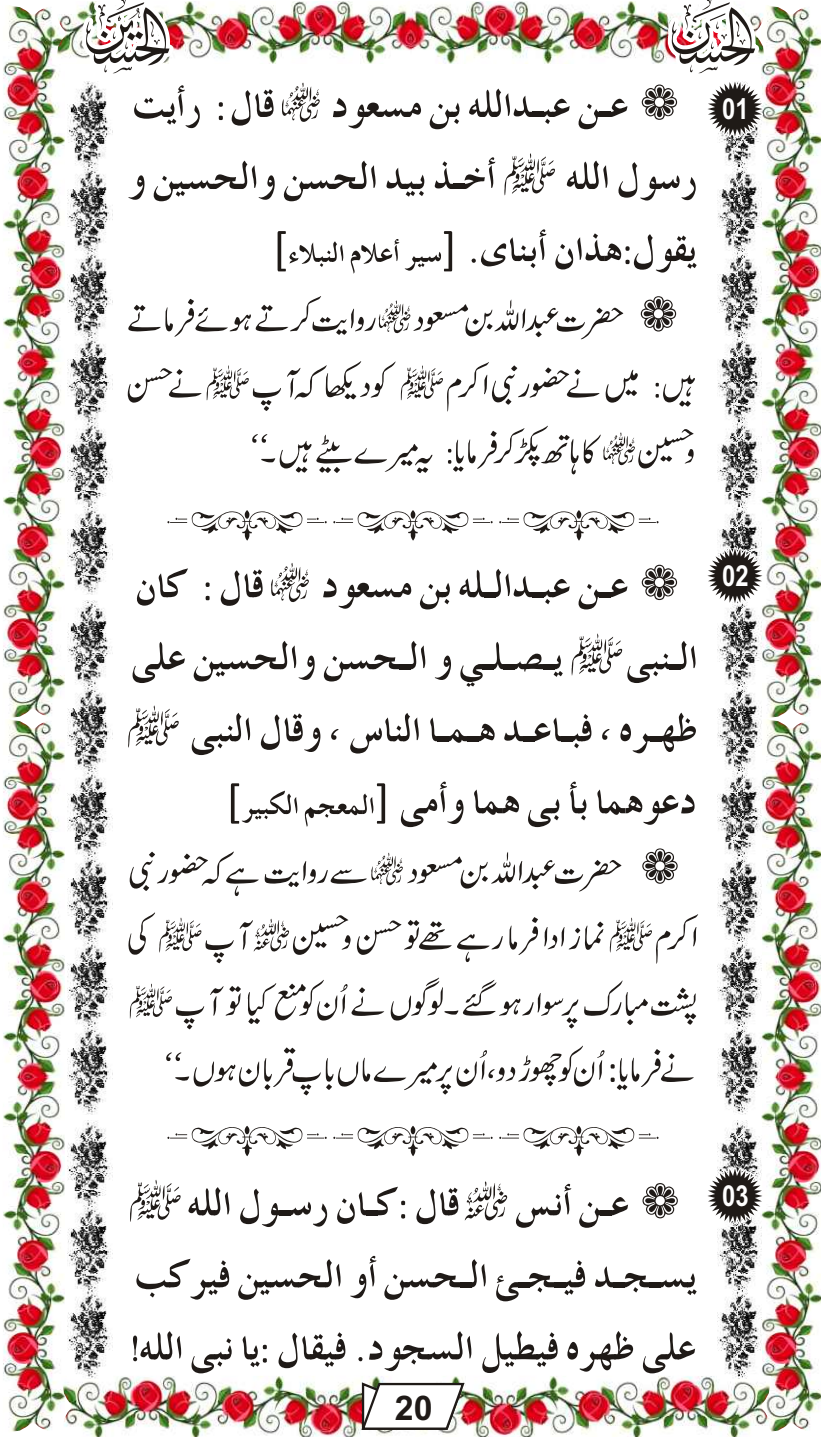 الحسنین الحسنین
01
عن عبدالله بن مسعود رضی اللہ عنہما قال : رأيت
رسول الله صلی اللہ علیہ وسلم أخذ بيد الحسن والحسين و
يقول:هذان أبنای. [سير أعلام النبلاء]
حضرت عبداللہ بن مسعود رضی اللہ عنہما روایت کرتے ہوئے فرماتے
ہیں: میں نے حضور نبی اکرم صلی اللہ علیہ وسلم کو دیکھا کہ آپ صلی اللہ علیہ وسلم نے حسن
وحسین رضی اللہ عنہما کا ہاتھ پکڑ کر فرمایا: یہ میرے بیٹے ہیں۔‘‘
02
عن عبدالله بن مسعود رضی اللہ عنہما قال : كان
النبی صلی اللہ علیہ وسلم يصلي و الحسن والحسين علی
ظهره ، فباعد هما الناس ، وقال النبی صلی اللہ علیہ وسلم
دعوهما بأ بی هما وأمی [المعجم الكبير]
حضرت عبداللہ بن مسعود رضی اللہ عنہما سے روایت ہے کہ حضور نبی
اکرم صلی اللہ علیہ وسلم نماز ادا فرما رہے تھے تو حسن وحسین رضی اللہ عنہ آپ صلی اللہ علیہ وسلم کی
پشت مبارک پر سوار ہو گئے۔لوگوں نے اُن کو منع کیا تو آپ صلی اللہ علیہ وسلم
نے فرمایا: اُن کو چھوڑ دو،اُن پر میرے ماں باپ قربان ہوں۔‘‘
03
عن أنس رضی اللہ عنہ قال :كان رسول الله صلی اللہ علیہ وسلم
يسجد فيجئ الحسن أو الحسين فيركب
علی ظهره فيطيل السجود. فيقال :يا نبی الله!
20